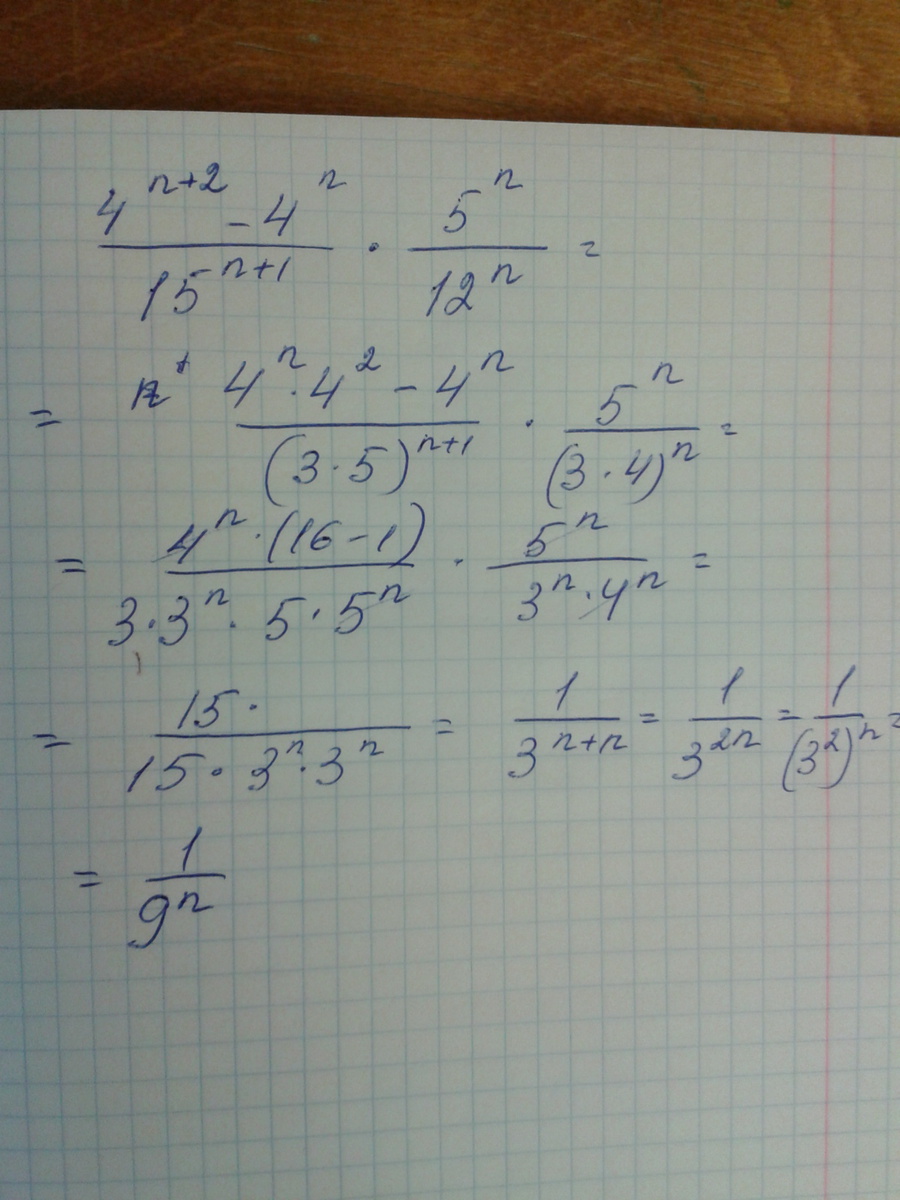 (4^(n+2) - 4^n)/(15^(n+1)) · 5^n/12^n =
= (4^n · 4^2 - 4^n)/((3·5)^(n+1)) · 5^n/(3·4)^n =
= (4^n · (16-1))/(3·3^n · 5·5^n) · 5^n/(3^n · 4^n) =
= (15 ·)/(15 · 3^n · 3^n) = 1/3^(n+n) = 1/3^(2n) = 1/(3^2)^n =
= 1/9^n